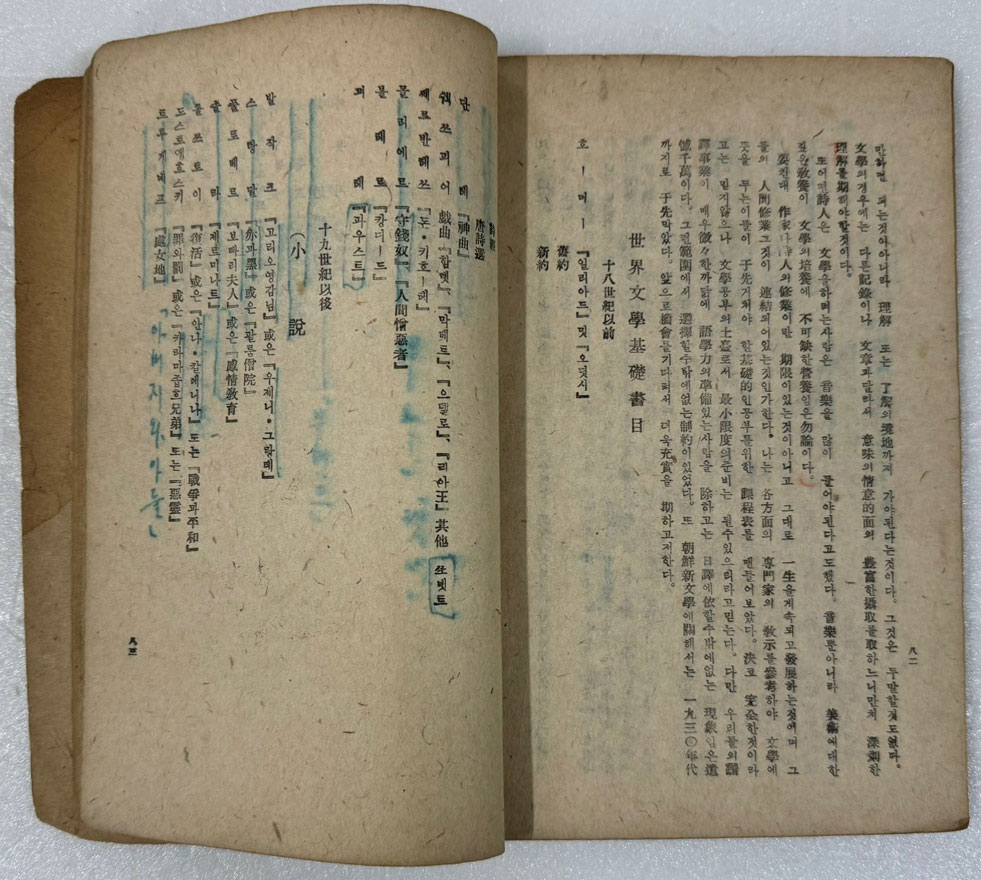 만하면 되는것아니라 理解 또는 了解의境地까지 가야된다는것이다。 그것은 두말할것도없다。
文學의경우에는 다른記錄이나 文章과달라서 意味의情意的面의 豊富한攝取를取하느니만치 深刻한
理解를期해야할것이다。
또어떤詩人은 文學을하려는사람은 音樂을 많이 들어야된다고도했다。 音樂뿐아니라 美術에대한
깊은敎養이 文學의培養에 不可缺한營養임은勿論이다。
要컨대 作家나詩人의修業이란 期限이있는것이아니고 그대로 一生을게속되고發展하는것이며 그
들의 人間修業그것이 連結되어있는것인가한다。 나는 各方面의 專門家의 敎示를參考하야 文學에
뜻을 두는이들이 于先거처야 한基礎的인공부를위한 課程表를 맨들어보았다。 決코 完全한것이라
고는 믿지않으나 文學공부의土臺로서 最小限度의준비는 될수있으리라고믿는다。 다만 우리들의飜
譯事業이 매우微々한까닭에 語學力의準備있는사람을 除하고는 日譯에依할수밖에없는 現象임은遺
憾千萬이다。 그런範圍에서 選擇할수밖에없는制約이있었다。 또 朝鮮新文學에關해서는 一九三〇年代
까지로 于先막았다。 앞으로機會를기다려서 더욱充實을 期하고저한다。
世界文學基礎書目
十八世紀以前
호ー머ー 『일리아드』 및 『오딧시』
舊約
新約
八二
唐詩選
단테 『神曲』
쉑쓰피어 戱曲 『함렡』、『막베트』、『으델로』、『리아王』 其他 쏘넷트
쎄르반테쓰 『돈・키호ー테』
몰리에르 『守錢奴』、『人間憎惡者』
볼테르 『캉디ー드』
꾀테 『파우스트』
十九世紀以後
(小說
발작크 『고리오영감님』 或은 『우제니・그랑데』
스탕달 『赤과黑』 或은 『팔름僧院』
풀로베르 『보바리夫人』 或은 『感情敎育』
졸라 『제르미나르』
톨쓰토이 『復活』 或은 『안나・칼레니나』 또는 『戰爭과平和』
도스토예흐스키 『罪와罰』 或은 『카라마좁흐兄弟』 또는 『惡靈』
트루게네프 『處女地』 『아버지와 아들』
八三